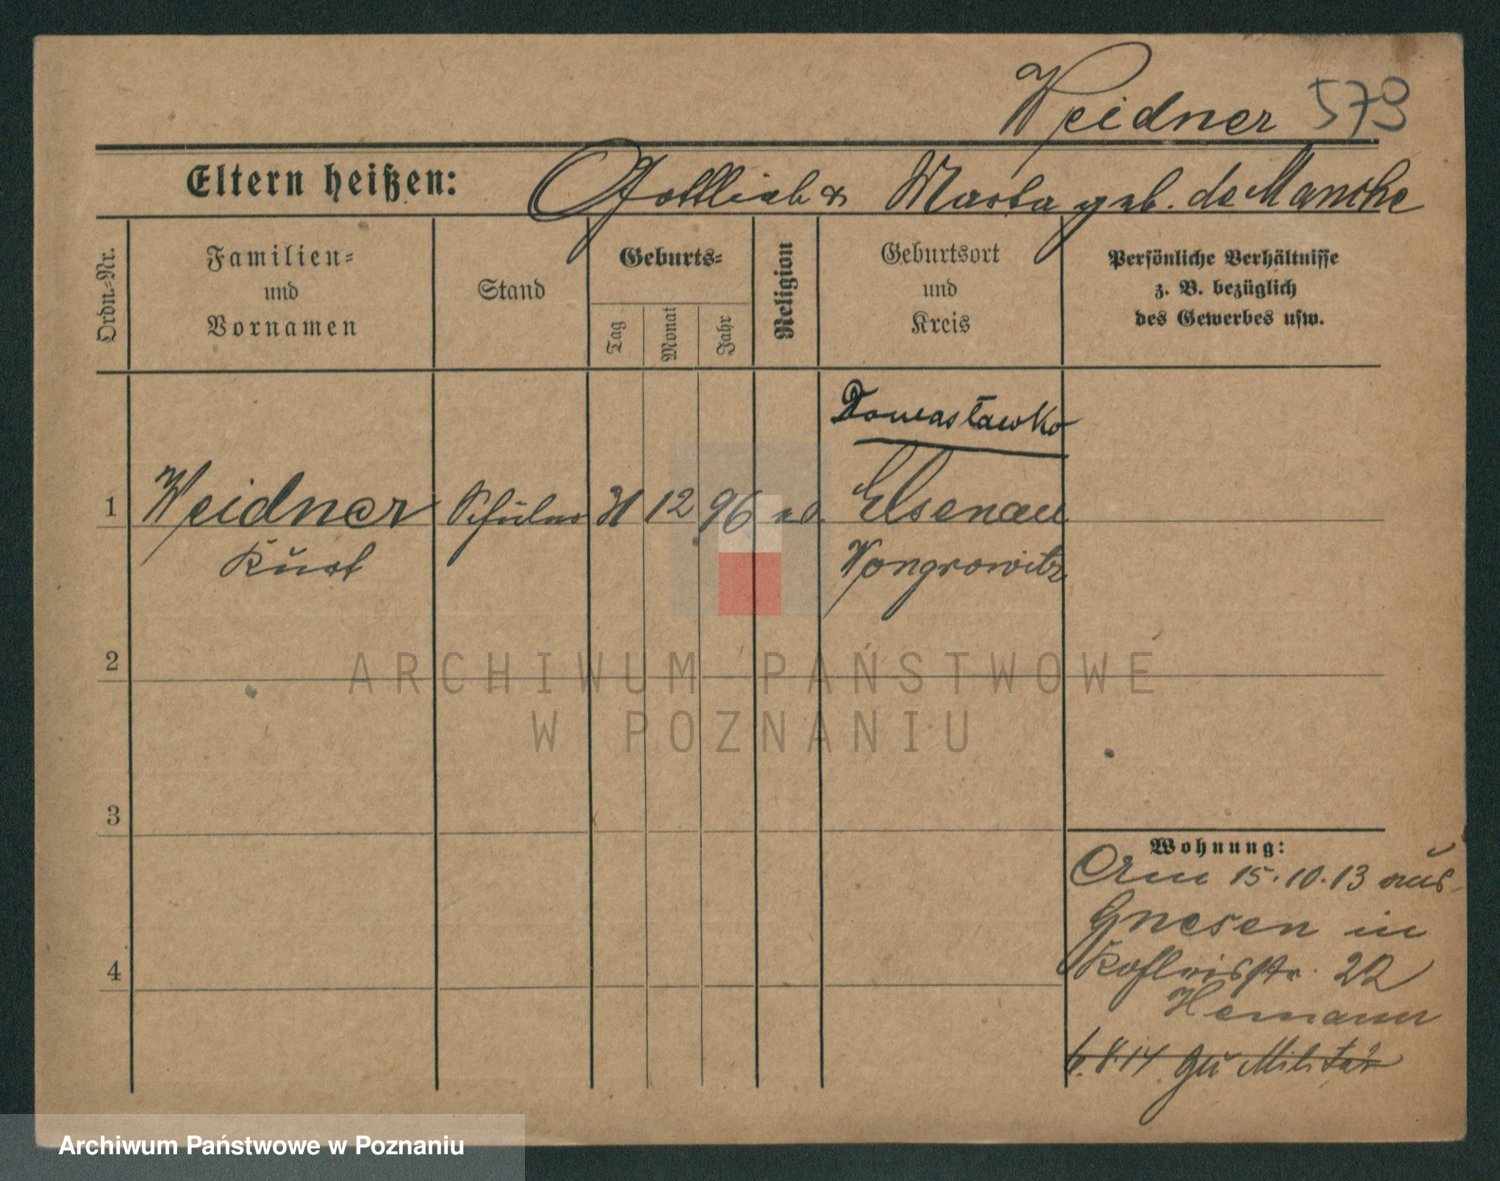 Weidner 573
Eltern heißen: Gottlieb & Marta geb. de Manske
Ordn.-Nr.
Familien-
und
Vornamen
Stand
Geburts-
Tag
Monat
Jahr
Religion
Geburtsort
und
Kreis
Persönliche Verhältnisse
z. B. bezüglich
des Gewerbes usw.
Domasławko
1 Weidner Schüler 31 12 96 Elsenau
Kurt Wongrowitz
2
ARCHIWUM PAŃSTWOWE
W POZNANIU
3
Wohnung:
Am 15.10.13 aus
Gnesen in
4
22
Hemann
6.8.14 zu Militär
Archiwum Państwowe w Poznaniu